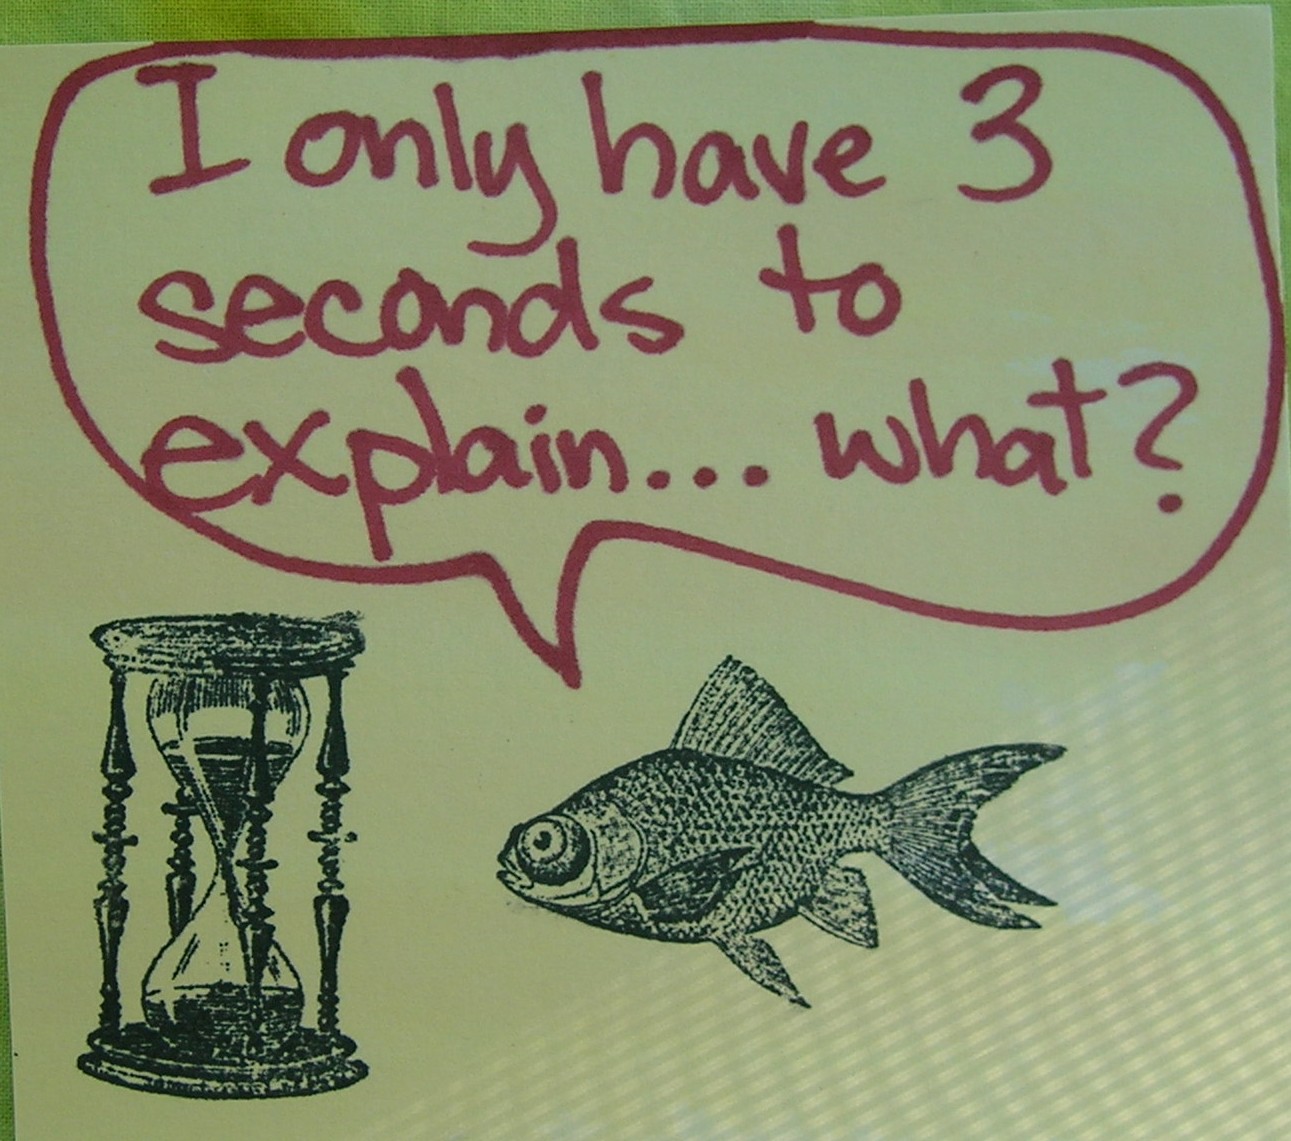 I only have 3
seconds to
explain... what?